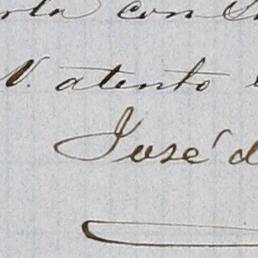 con
V. atento
José d